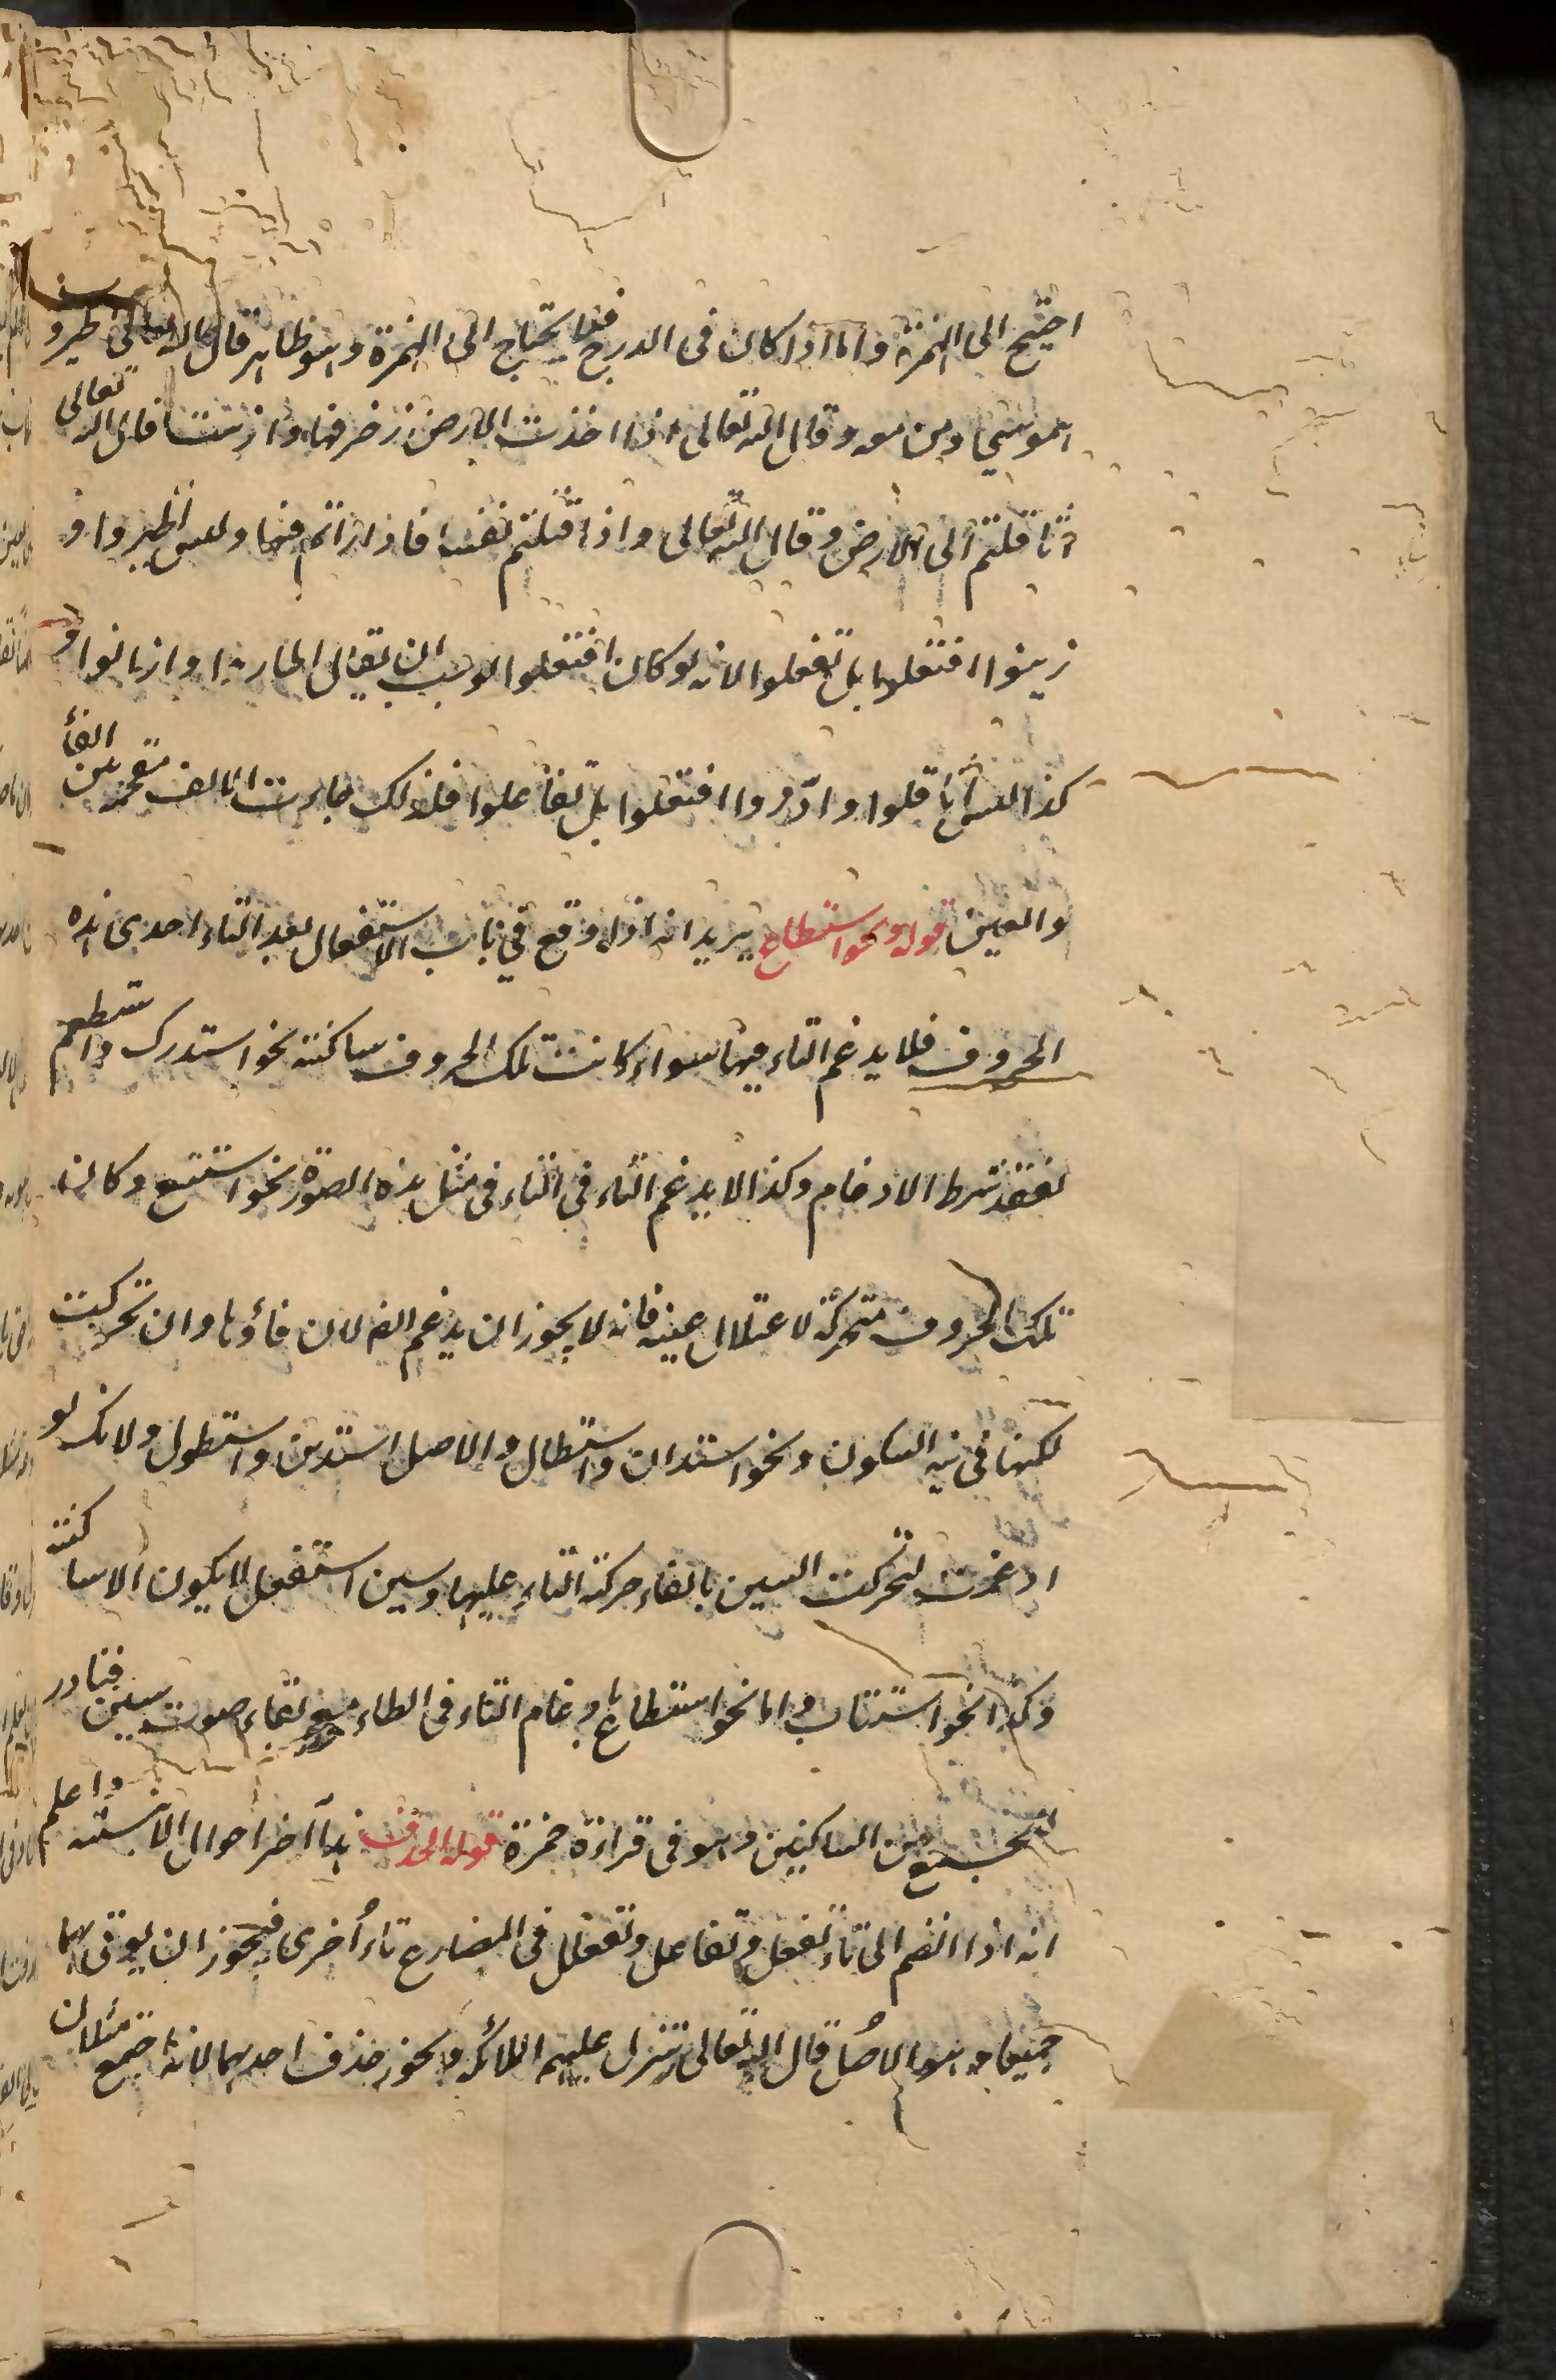 احتيج الى الهمزة واما اذا كان فى الدرج فلا يحتاج الى الهمزة وهو ظاهر قال الله تعالى يطيروا
بموسى ومن معه وقال الله تعالى اذا اخذت الارض زخرفها وازينت قال الله تعالى
اثاقلتم الى الارض وقال الله تعالى واذ قتلتم نفسا فادارأتم فيها وليس اطيروا و
ازينوا افتعلوا بل تفعلوا لانه لو كان افتعلوا لوجب ان يقال اطاروا وازانوا و
كذا ليس اثاقلوا وادّروا افتعلوا بل تفاعلوا فلذلك جاءت الالف مقحمة بين الفاء
والعين قوله ونحو استطاع يريد انه اذا وقع في باب الاستفعال بعد التاء احدى هذه
الحروف فلا يدغم التاء فيها سواء كانت تلك الحروف ساكنة نحو استدرك واستطعم
لفقد شرط الادغام وكذا لا يدغم التاء فى التاء فى مثل هذه الصورة نحو استتبع وكان
تلك الحروف متحركة لاعتلال عينه فانه لا يجوز ان يدغم ايضا لان فاؤها وان تحركت
لكنها فى نية السكون ونحو استدان واستطال والاصل استدين واستطول ولانك لو
ادغمت لتحركت السين بالقاء حركة التاء عليها وسين استفعل لا يكون الا ساكنة
وكذا نحو استتاب واما نحو اسطاع بادغام التاء فى الطاء مع بقاء صوت سين فنادر
لجمع بين الساكنين وهو فى قراءة حمزة قوله الحذف هذا آخر احوال الابنية واعلم
انه اذا انضم الى تاء تفعل وتفاعل وتفعلل فى المضارع تاء أخرى فيجوز ان يوتى بهما
جميعا وهو الاصل قال الله تعالى تتنزل عليهم الملائكة ويجوز حذف احديهما لانه اجتمع مثلان